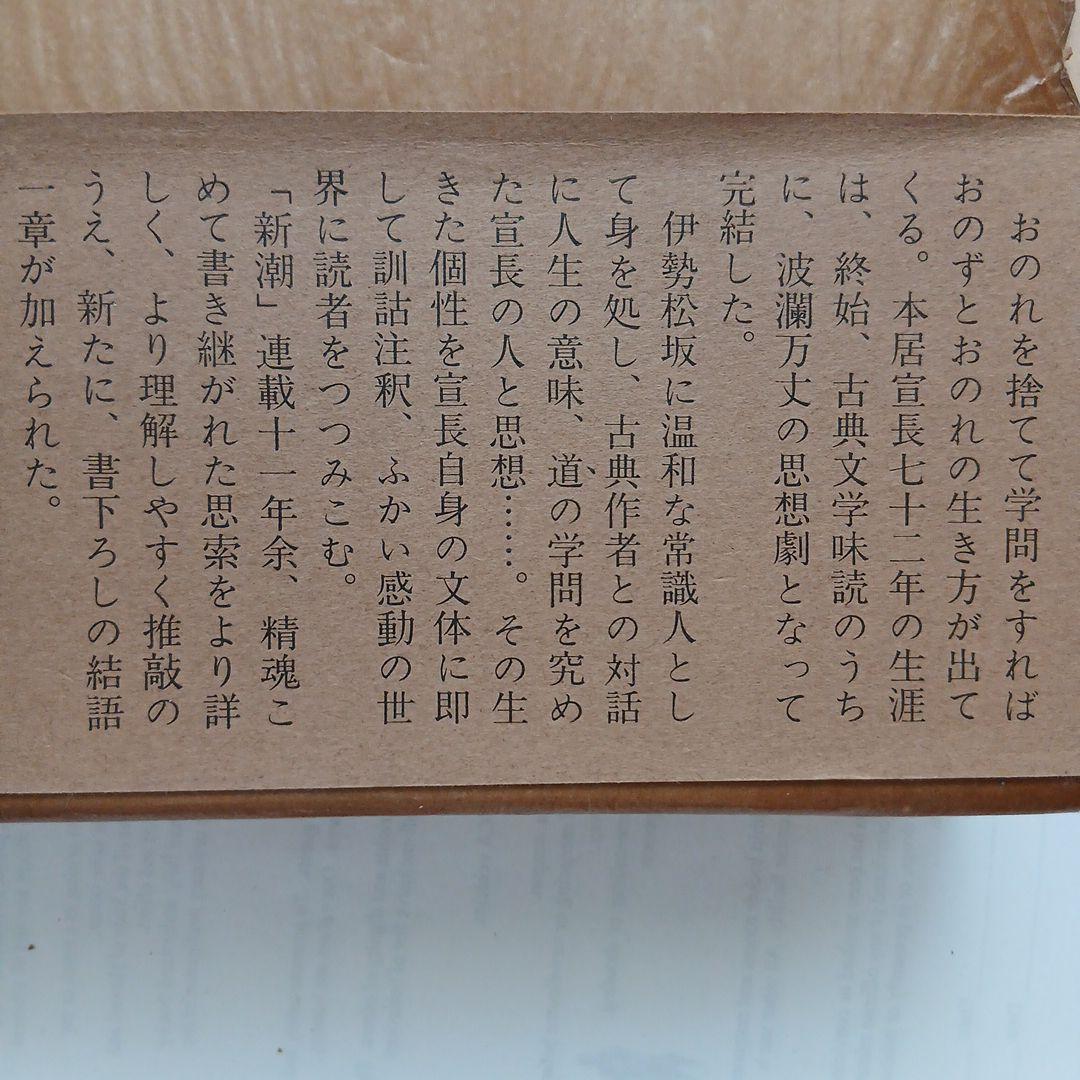 おのれを捨てて学問をすれば
おのずとおのれの生き方が出て
くる。本居宣長七十二年の生涯
は、終始、古典文学味読のうち
に、波瀾万丈の思想劇となって
完結した。
伊勢松坂に温和な常識人とし
て身を処し、古典作者との対話
に人生の意味、道の学問を究め
た宣長の人と思想……。その生
きた個性を宣長自身の文体に即
して訓詁注釈、ふかい感動の世
界に読者をつつみこむ。
「新潮」連載十一年余、精魂こ
めて書き継がれた思索をより詳
しく、より理解しやすく推敲の
うえ、新たに、書下ろしの結語
一章が加えられた。